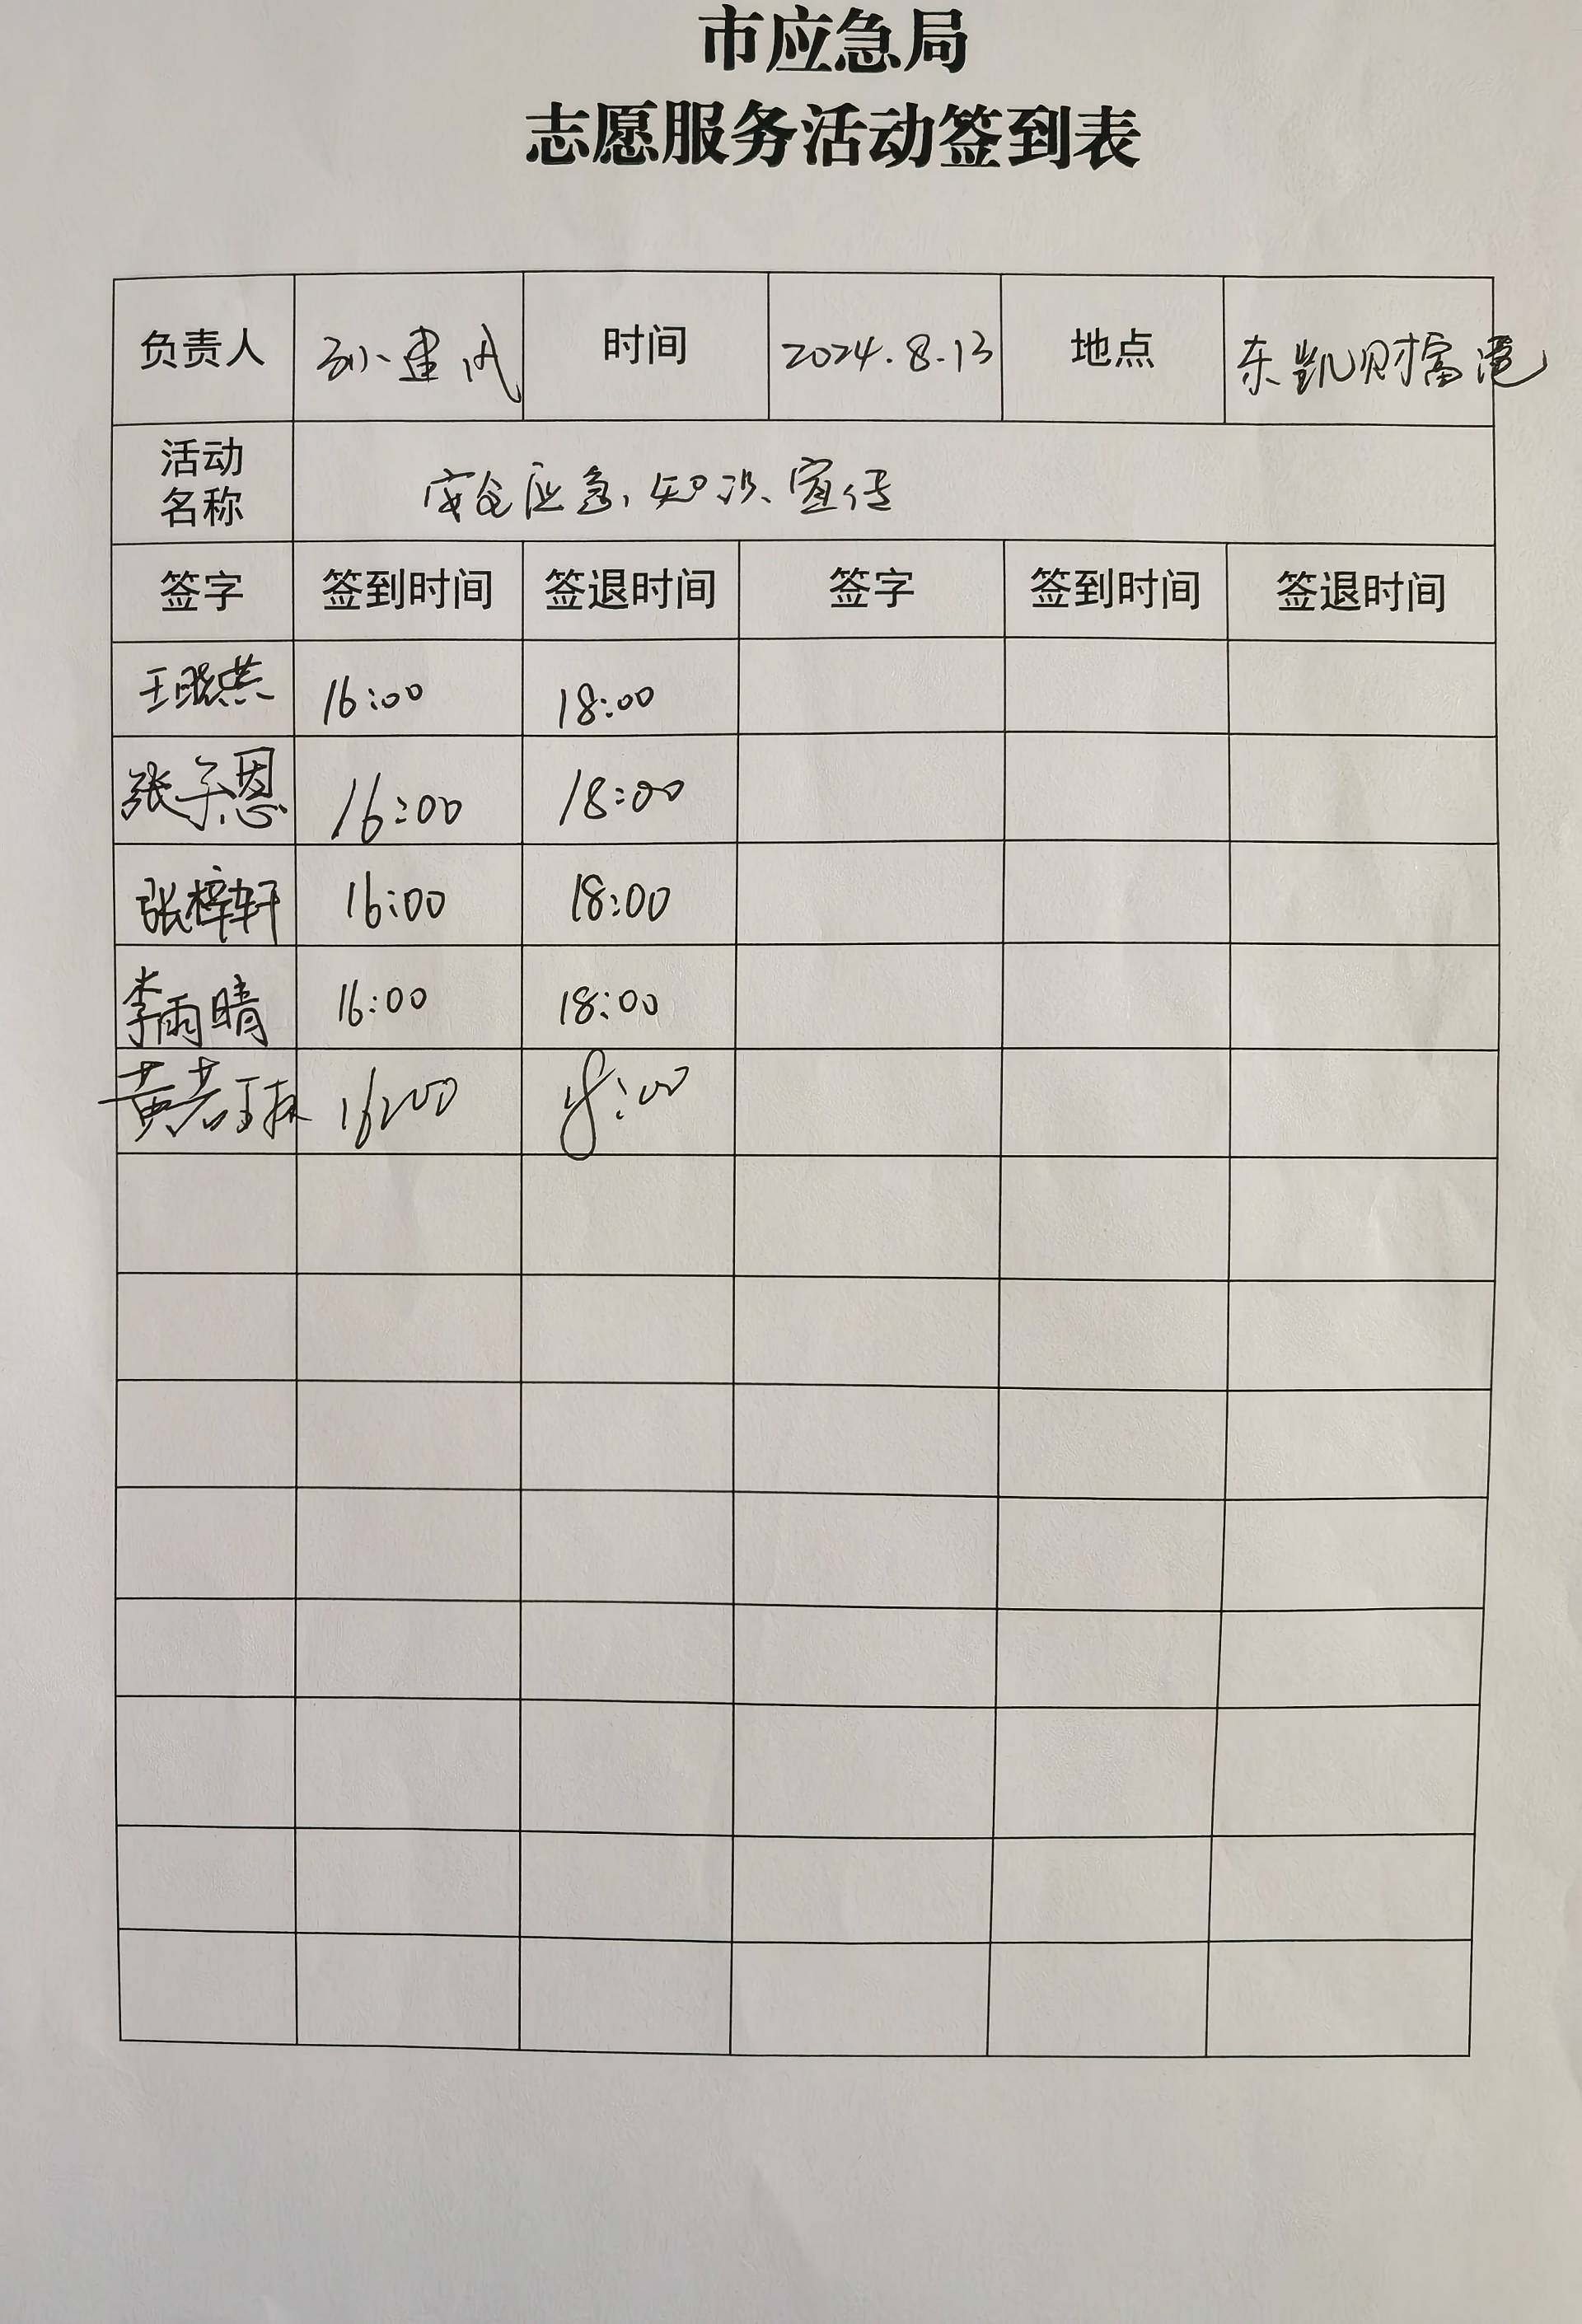 市应急局
志愿服务活动签到表
负责人 孙建风 时间 2024.8.13 地点 东凯财富港
活动名称 安全应急知识宣传
签字 签到时间 签退时间 签字 签到时间 签退时间
王晓燕 16:00 18:00
张子恩 16:00 18:00
张梓轩 16:00 18:00
李雨晴 16:00 18:00
黄若琳 16:00 18:00